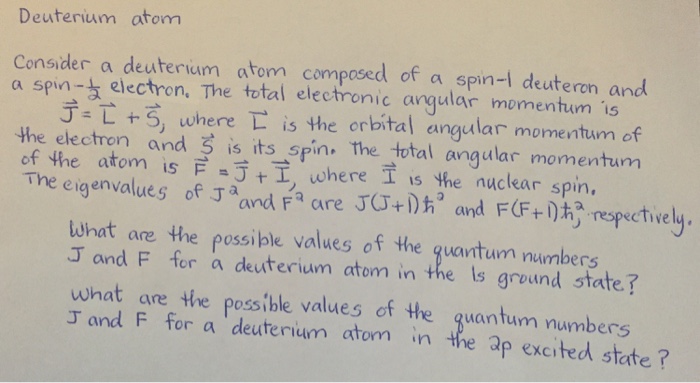 Deuterium atom
Consider a deuterium atom composed of a spin-1 deuteron and
a spin-½ electron. The total electronic angular momentum is
J⃗ = L⃗ + S⃗, where L⃗ is the orbital angular momentum of
the electron and S⃗ is its spin. The total angular momentum
of the atom is F⃗ = J⃗ + I⃗, where I⃗ is the nuclear spin.
The eigenvalues of J² and F² are J(J+1)ħ² and F(F+1)ħ², respectively.
What are the possible values of the quantum numbers
J and F for a deuterium atom in the 1s ground state?
What are the possible values of the quantum numbers
J and F for a deuterium atom in the 2p excited state?